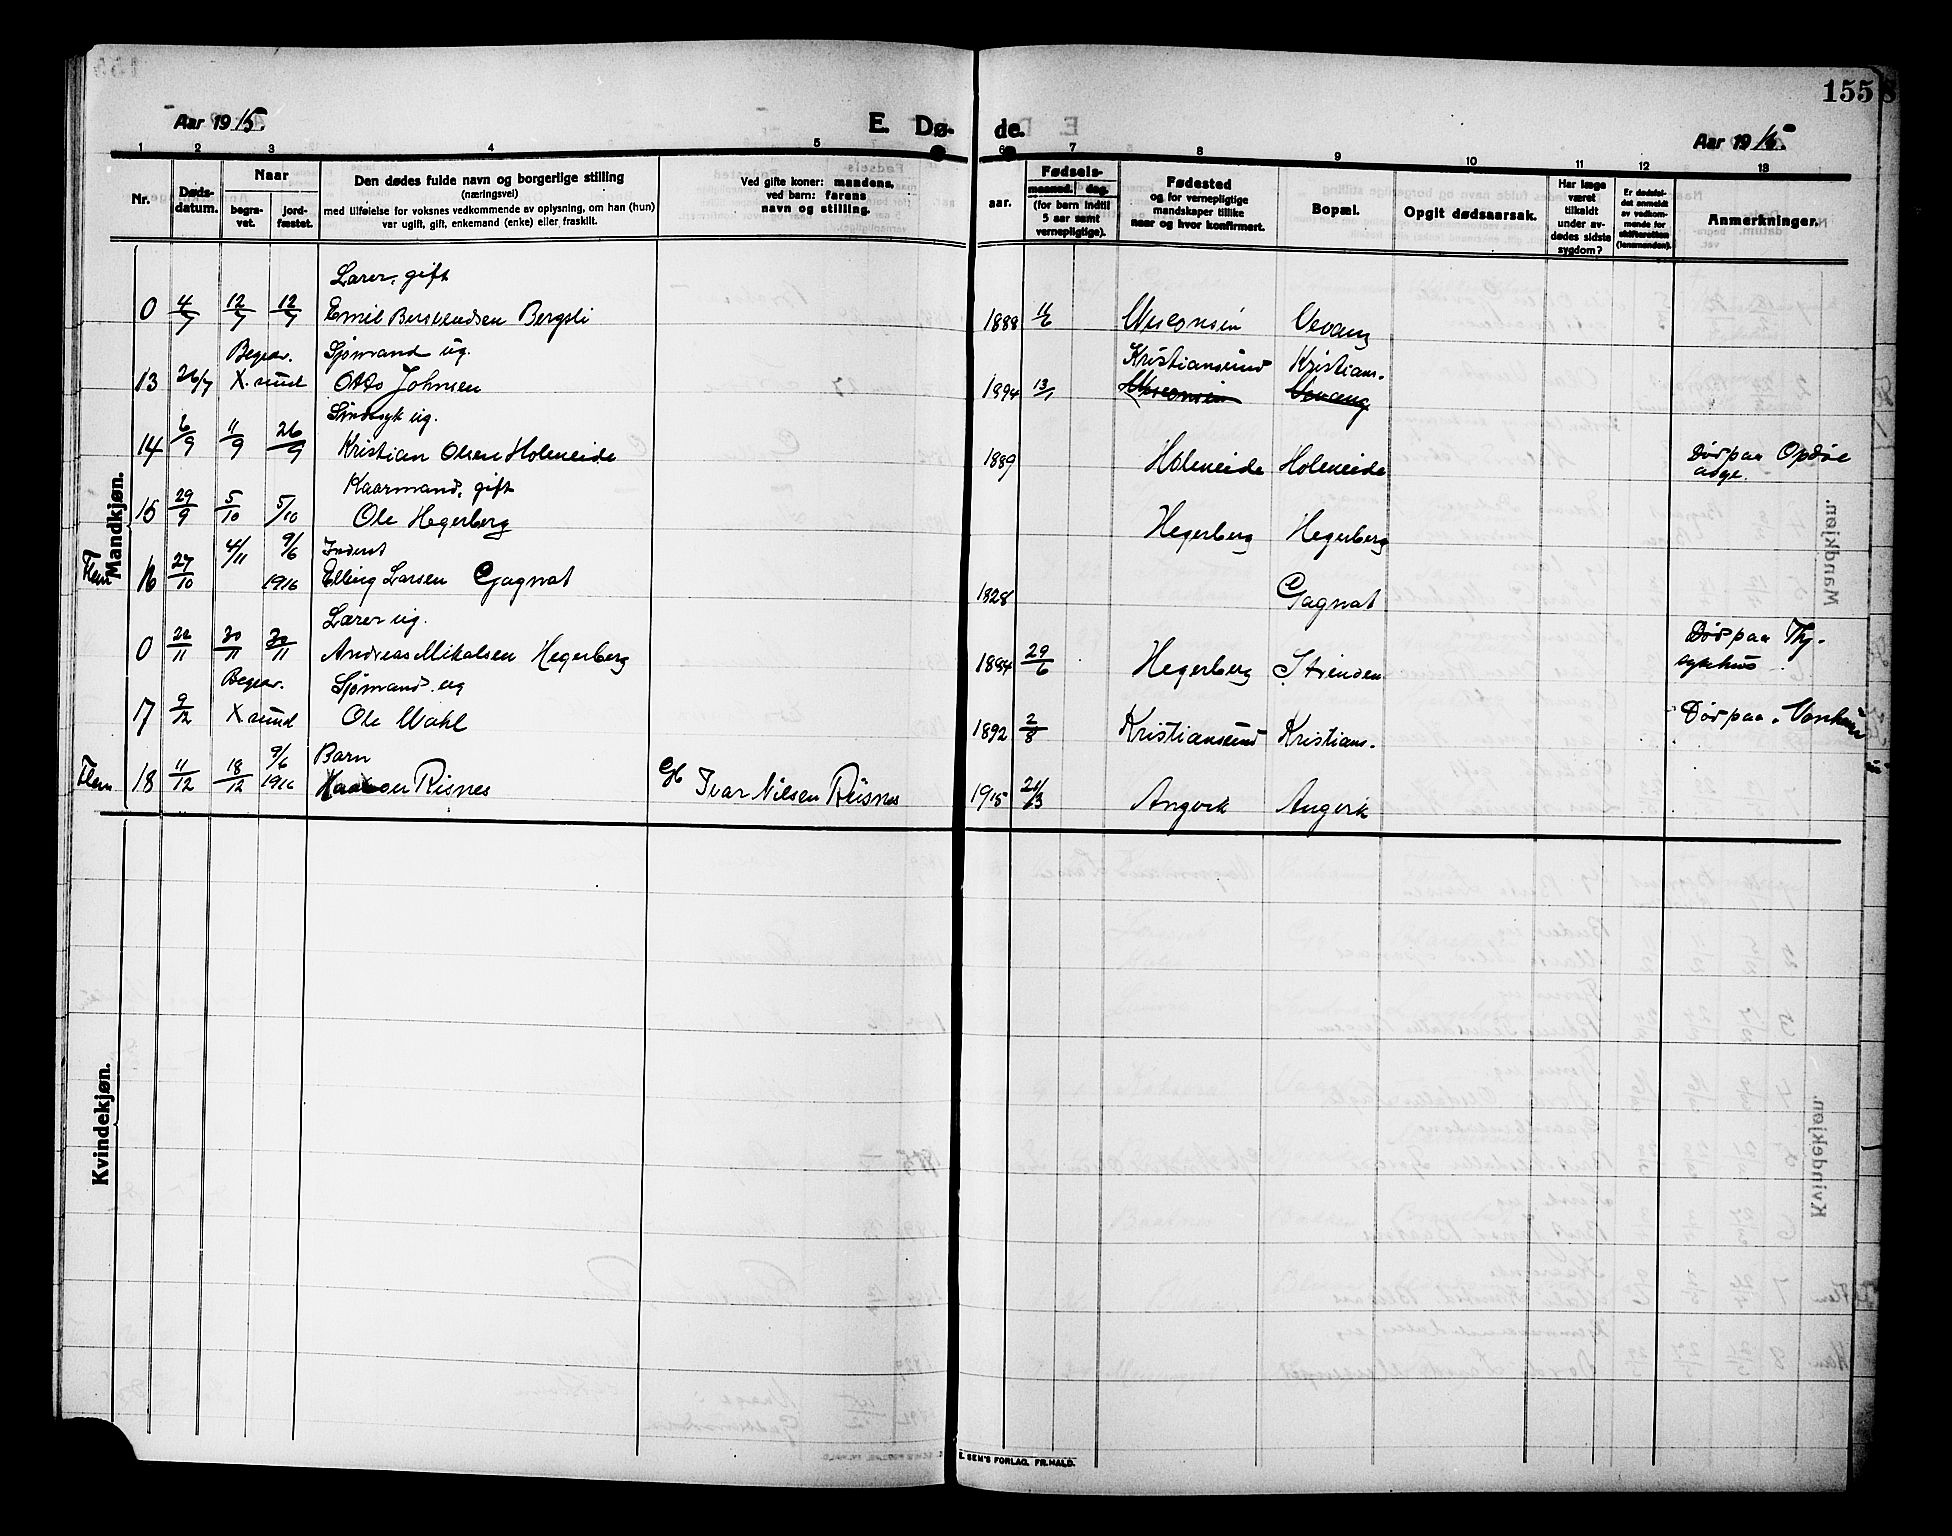 155
Aar 1915.
E. Dø-
de.
Aar 1915.
1 2 3 4 5 6 7 8 9 10 11 12 13
Nr.
Døds-
datum.
Naar
begra-
vet.
jord-
fæstet.
Den dødes fulde navn og borgerlige stilling
(næringsvei)
med tilføielse for voksnes vedkommende av oplysning, om han (hun)
var ugift, gift, enkemand (enke) eller fraskilt.
Ved gifte koner: mandens,
ved barn: farens
navn og stilling.
aar.
Fødsels-
maaned. dag.
(for barn indtil
5 aar samt
vernepligtige).
Fødested
og for vernepligtige
mandskaper tillike
naar og hvor konfirmert.
Bopæl.
Opgit dødsaarsak.
Har læge
været
tilkaldt
under av-
dødes sidste
sygdom?
Er dødsfal-
det anmeldt
av vedkom-
mende for
skifteretten
(lensmanden).
Anmerkninger.
Mandkjøn.
Lærer, gift
0 4/7 12/7 12/7 Emil Bersvendsen Bergsli 1888 11/6 Wisconsin Vevang
Begrav. Sjømand ug. Kristiansund Kristians.
13 26/7 X.sund Otto Johnsen 1894 13/1 Wisconsin Vevang
Sindssyk ug.
14 6/9 11/9 26/9 Kristian Olsen Holeneide 1889 Holeneide Holeneide Død paa Opdøl
asyl.
Kaarmand, gift
15 29/9 5/10 5/10 Ole Hegerberg Hegerberg Hegerberg
Hem 16 27/10 4/11 9/6 Inderst
1916 Elling Larsen Gagnat 1828 Gagnat
Lærer ug.
0 22/11 30/11 30/11 Andreas Mikalsen Hegerberg 1884 29/6 Hegerberg Strinden Død paa
sykehus
Begrav. Sjømand ug
17 9/12 X sund Ole Wahl 1892 2/8 Kristiansund Kristians. Død paa
Hem 18 11/12 18/12 9/6 Barn
1916 Risnes Ivar Nilsen Risnes 1915 21/3 Angvik Angvik
Kvindekjøn.
SEN'S FORLAG, FR.HALD.